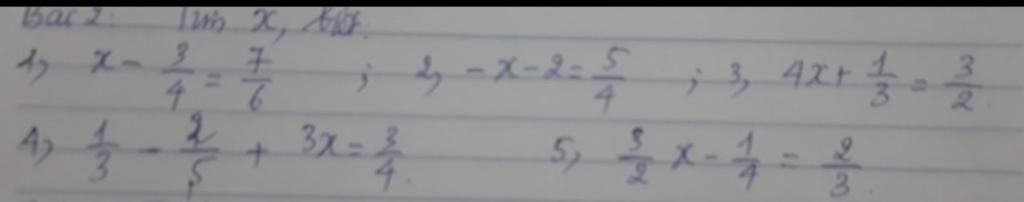 Bài 2: Tìm x, biết.
1, x - 3/4 = 7/6 ; 2, -x - 2 = 5/4 ; 3, 4x + 1/3 = 3/2.
4, 1/3 - 2/5 + 3x = 3/4. 5, 3/2 x - 1/4 = 2/3.